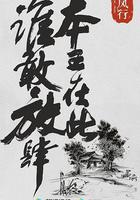 风行
本王在此
谁敢放肆